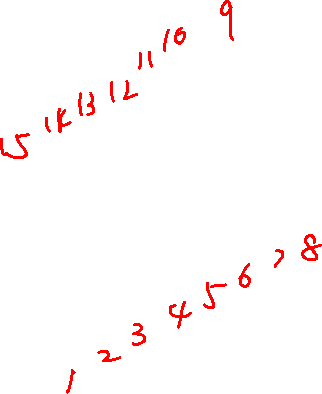 15 14 13 12 11 10 9
1 2 3 4 5 6 7 8